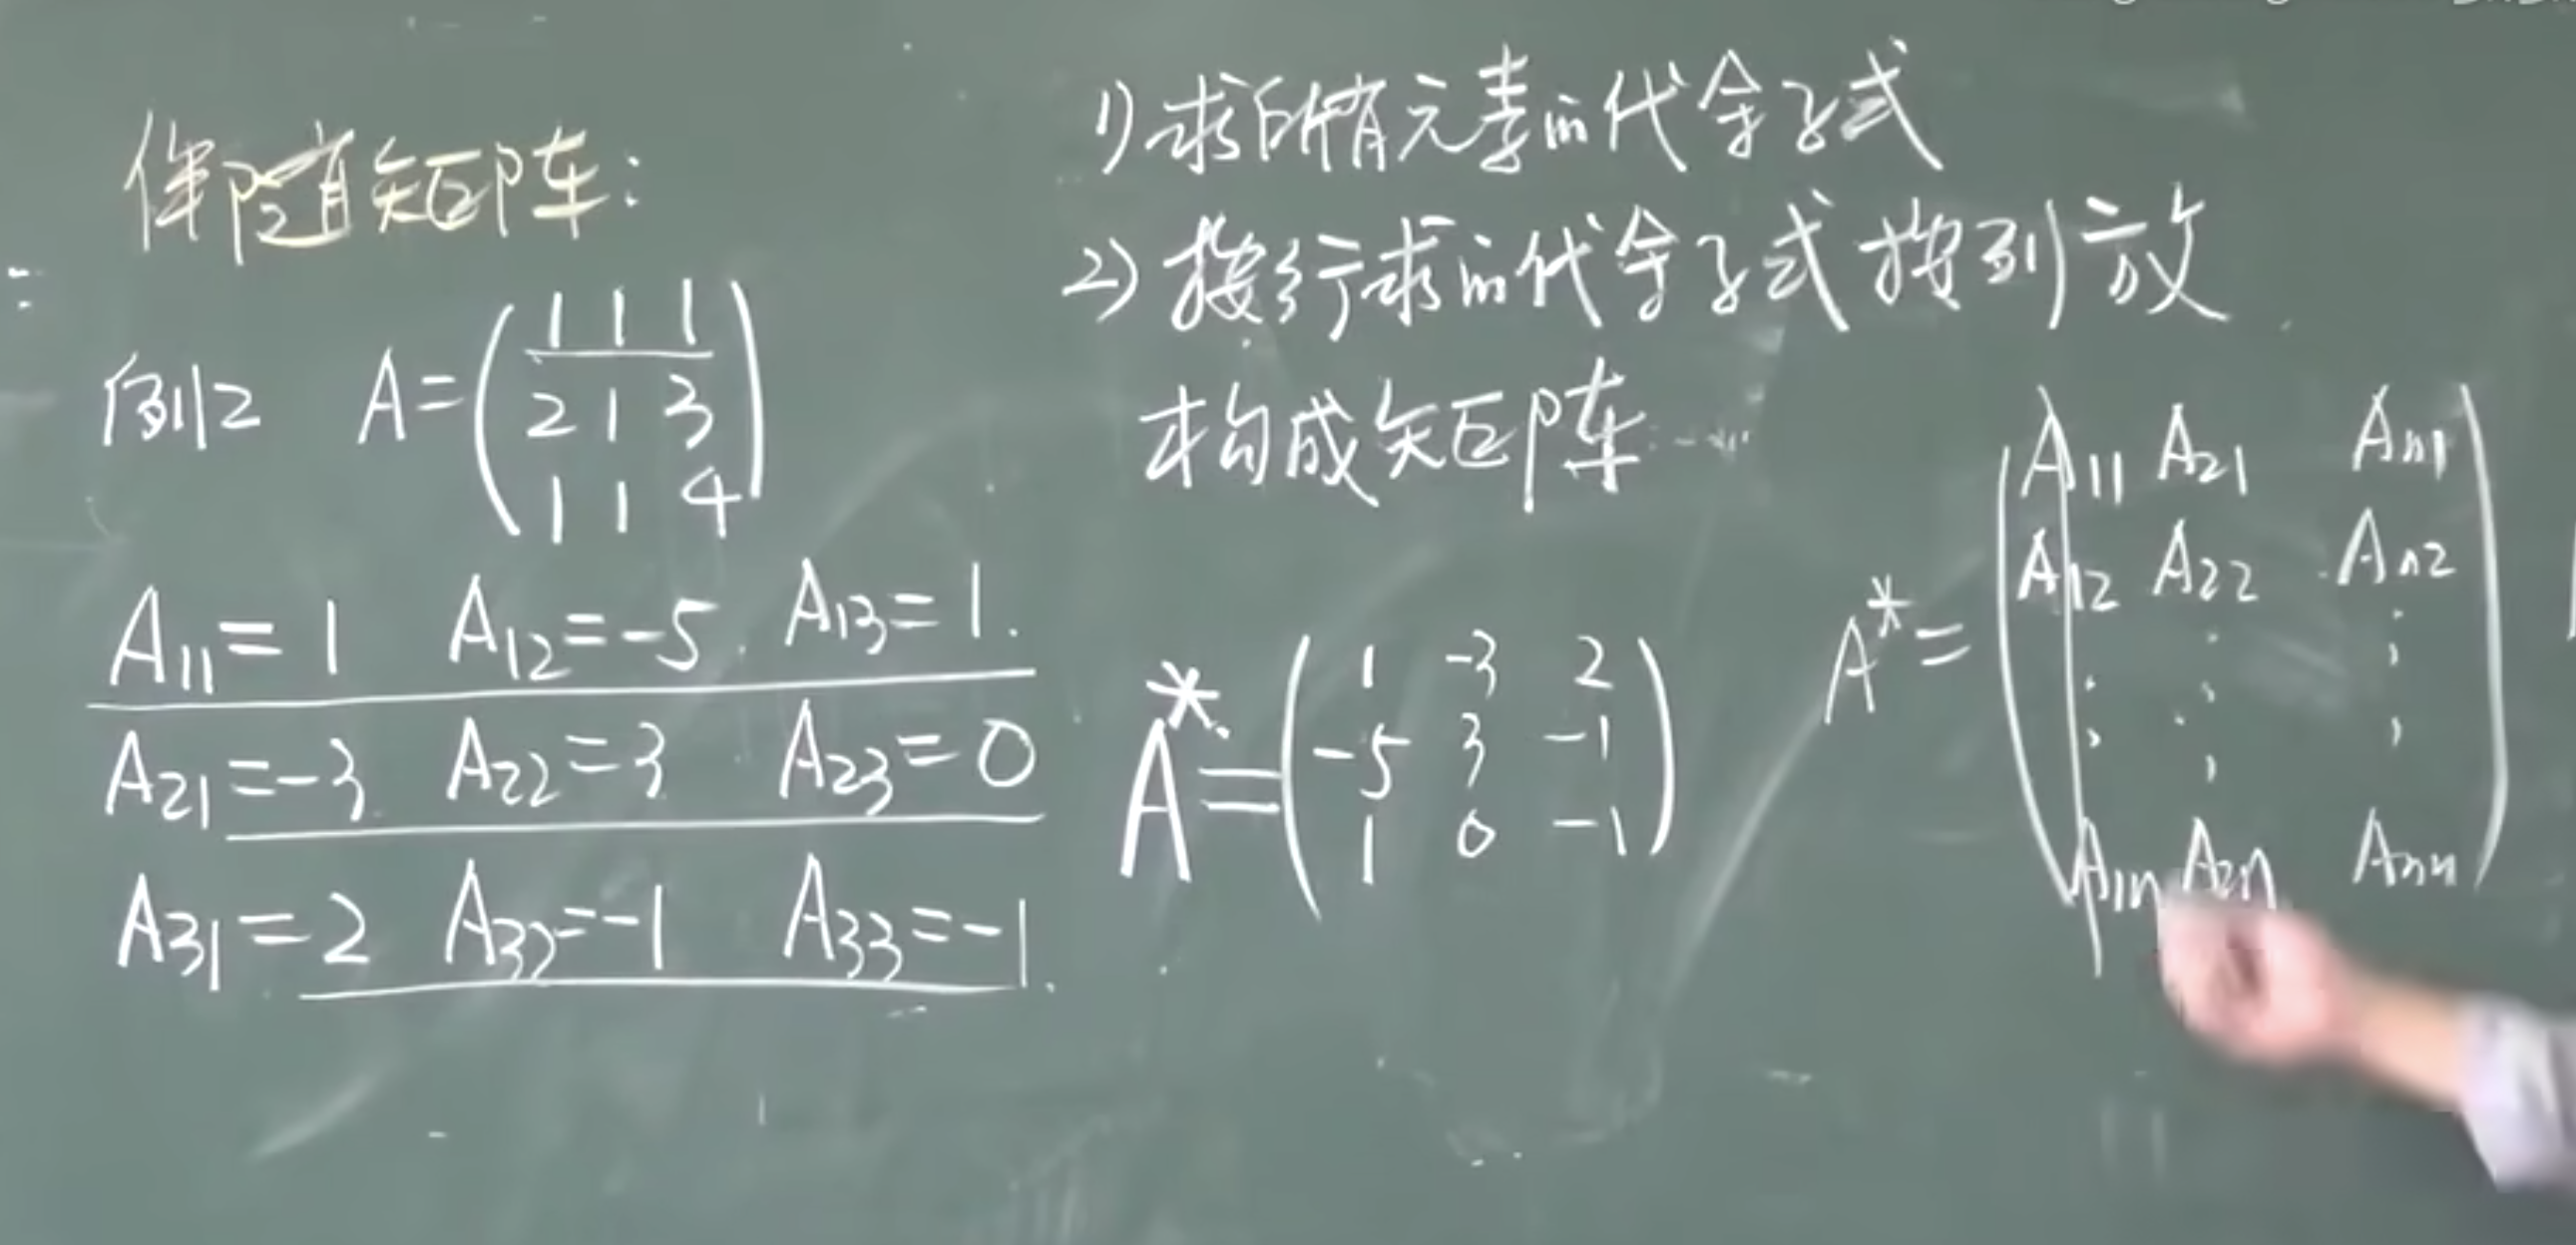 伴随矩阵:
例2 A=(1 1 1
2 1 3
1 1 4)
A11=1 A12=-5 A13=1.
A21=-3 A22=3 A23=0
A31=2 A32=-1 A33=-1.
1)求所有元素的代余子式
2)按行求的代余子式按列放
构成矩阵
A*=(1 -3 2
-5 3 -1
1 0 -1)
A*=(A11 A21 An1
A12 A22 An2
A1n A2n Ann)